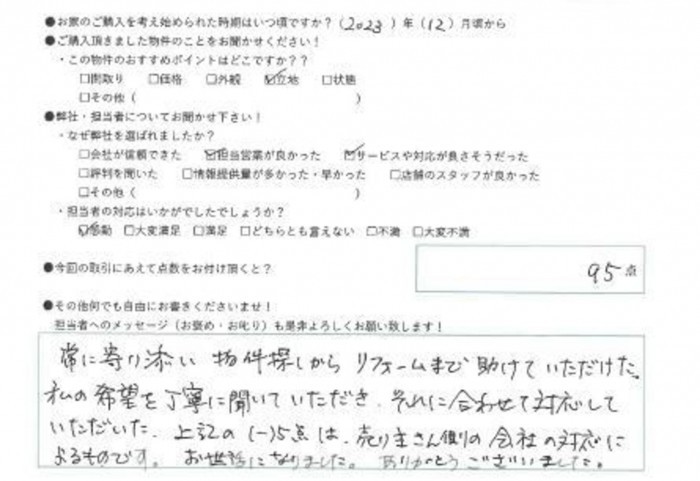 ●お家のご購入を考え始められた時期はいつ頃ですか?（2023）年（12）月頃から
●ご購入頂きました物件のことをお聞かせください！
・この物件のおすすめポイントはどこですか？？
□間取り □価格 □外観 ☑立地 □状態
□その他（ ）
●弊社・担当者についてお聞かせ下さい！
・なぜ弊社を選ばれましたか？
□会社が信頼できた ☑担当営業が良かった ☑サービスや対応が良さそうだった
□評判を聞いた □情報提供量が多かった・早かった □店舗のスタッフが良かった
□その他（ ）
・担当者の対応はいかがでしたでしょうか？
☑感動 □大変満足 □満足 □どちらとも言えない □不満 □大変不満
●今回の取引にあえて点数をお付け頂くと？ 95 点
●その他何でも自由にお書きくださいませ！
担当者へのメッセージ（お褒め・お叱り）も是非よろしくお願い致します！
常に寄り添い 物件探しから リフォームまで 助けていただけた。
私の希望を丁寧に聞いていただき、それに合わせて対応して
いただいた。上記の(-)5点は、売り主さん側の会社の対応に
よるものです。お世話になりました。ありがとうございました。